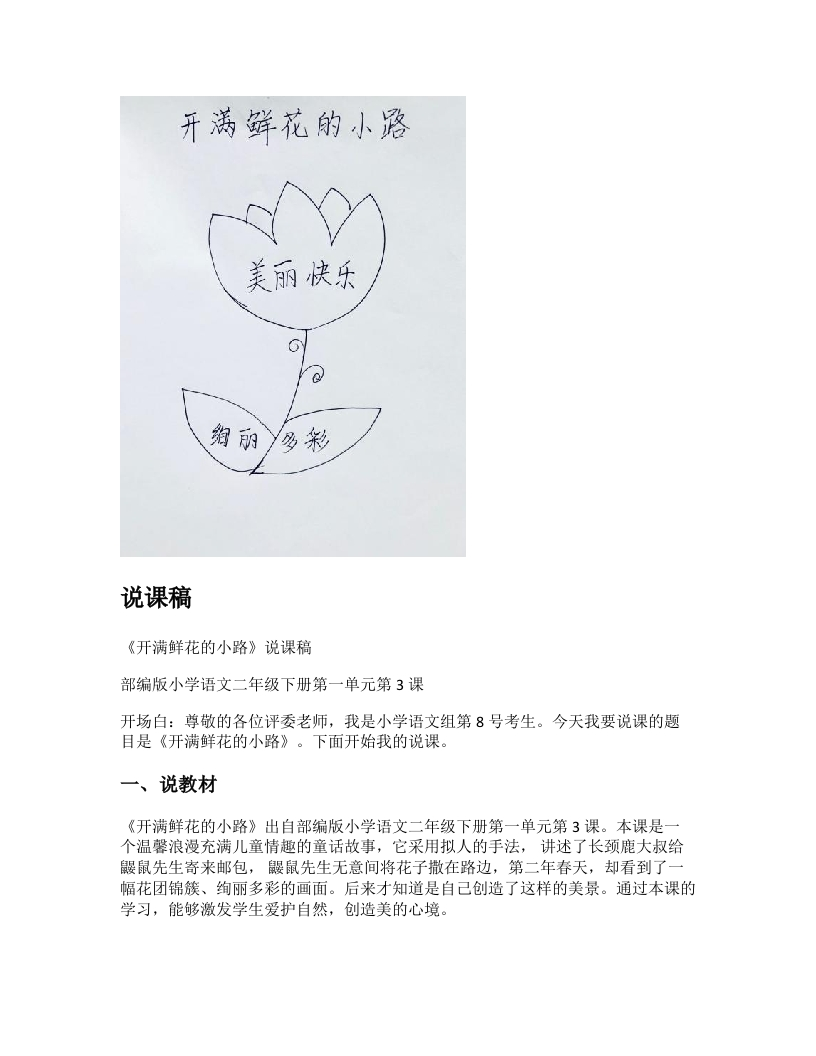 开满鲜花的小路
美丽快乐
绚丽 多彩
说课稿
《开满鲜花的小路》说课稿
部编版小学语文二年级下册第一单元第 3 课
开场白：尊敬的各位评委老师，我是小学语文组第 8 号考生。今天我要说课的题
目是《开满鲜花的小路》。下面开始我的说课。
一、说教材
《开满鲜花的小路》出自部编版小学语文二年级下册第一单元第 3 课。本课是一
个温馨浪漫充满儿童情趣的童话故事，它采用拟人的手法， 讲述了长颈鹿大叔给
鼹鼠先生寄来邮包， 鼹鼠先生无意间将花子撒在路边，第二年春天，却看到了一
幅花团锦簇、绚丽多彩的画面。后来才知道是自己创造了这样的美景。通过本课的
学习，能够激发学生爱护自然，创造美的心境。